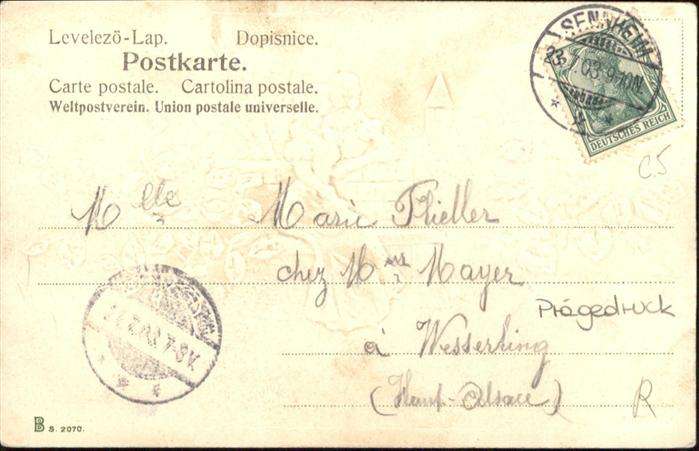 Levelezö-Lap. Dopisnice.
Postkarte.
Carte postale. Cartolina postale.
Weltpostverein. Union postale universelle.
SENNHEIM
03 9-10N.
DEUTSCHES REICH
C5
Mlle Marie Flieller
chez Mme Mayer
Prägedruck
à Wesserling
(Haute-Alsace)
R
7-8V.
B S. 2070.